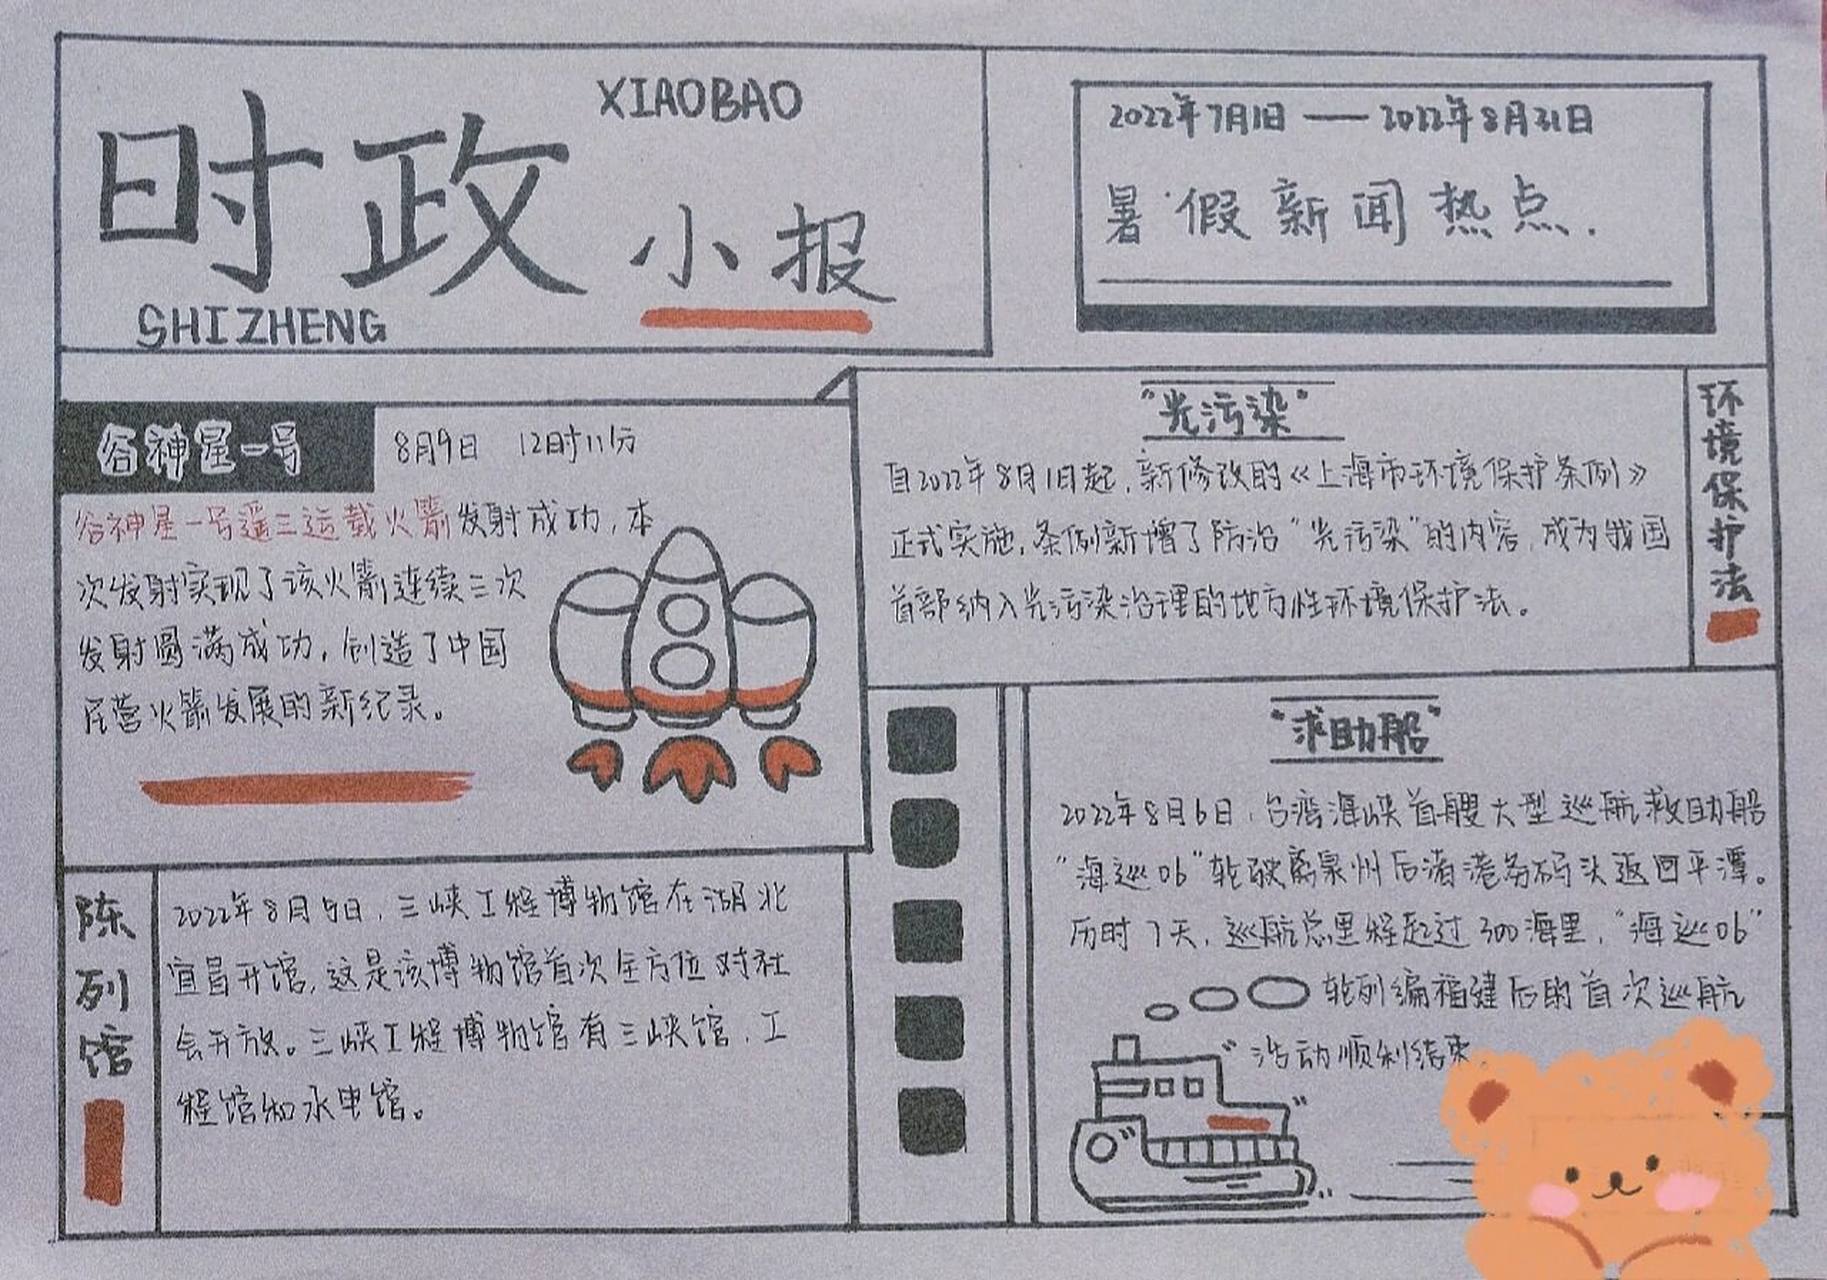 XIAOBAO
时政
小报
SHIZHENG
2022年7月1日——2022年8月31日
暑假新闻热点.
谷神星一号
8月9日 12时11分
谷神星一号遥三运载火箭发射成功，本
次发射实现了该火箭连续三次
发射圆满成功，创造了中国
民营火箭发展的新纪录。
"光污染"
自2022年8月1日起，新修改的《上海市环境保护条例》
正式实施，条例新增了防治"光污染"的内容，成为我国
首部纳入光污染治理的地方性环境保护法。
环境保护法
陈列馆
2022年8月8日，三峡工程博物馆在湖北
宜昌开馆，这是该博物馆首次全方位对社
会开放。三峡工程博物馆有三峡馆、工
程馆和水电馆。
"求助船"
2022年8月6日，台湾海峡首艘大型巡航救助船
"海巡06"轮驶离泉州后渚港务码头返回平潭。
历时7天，巡航总里程超过300海里，"海巡06"
轮列编福建后的首次巡航
活动顺利结束。